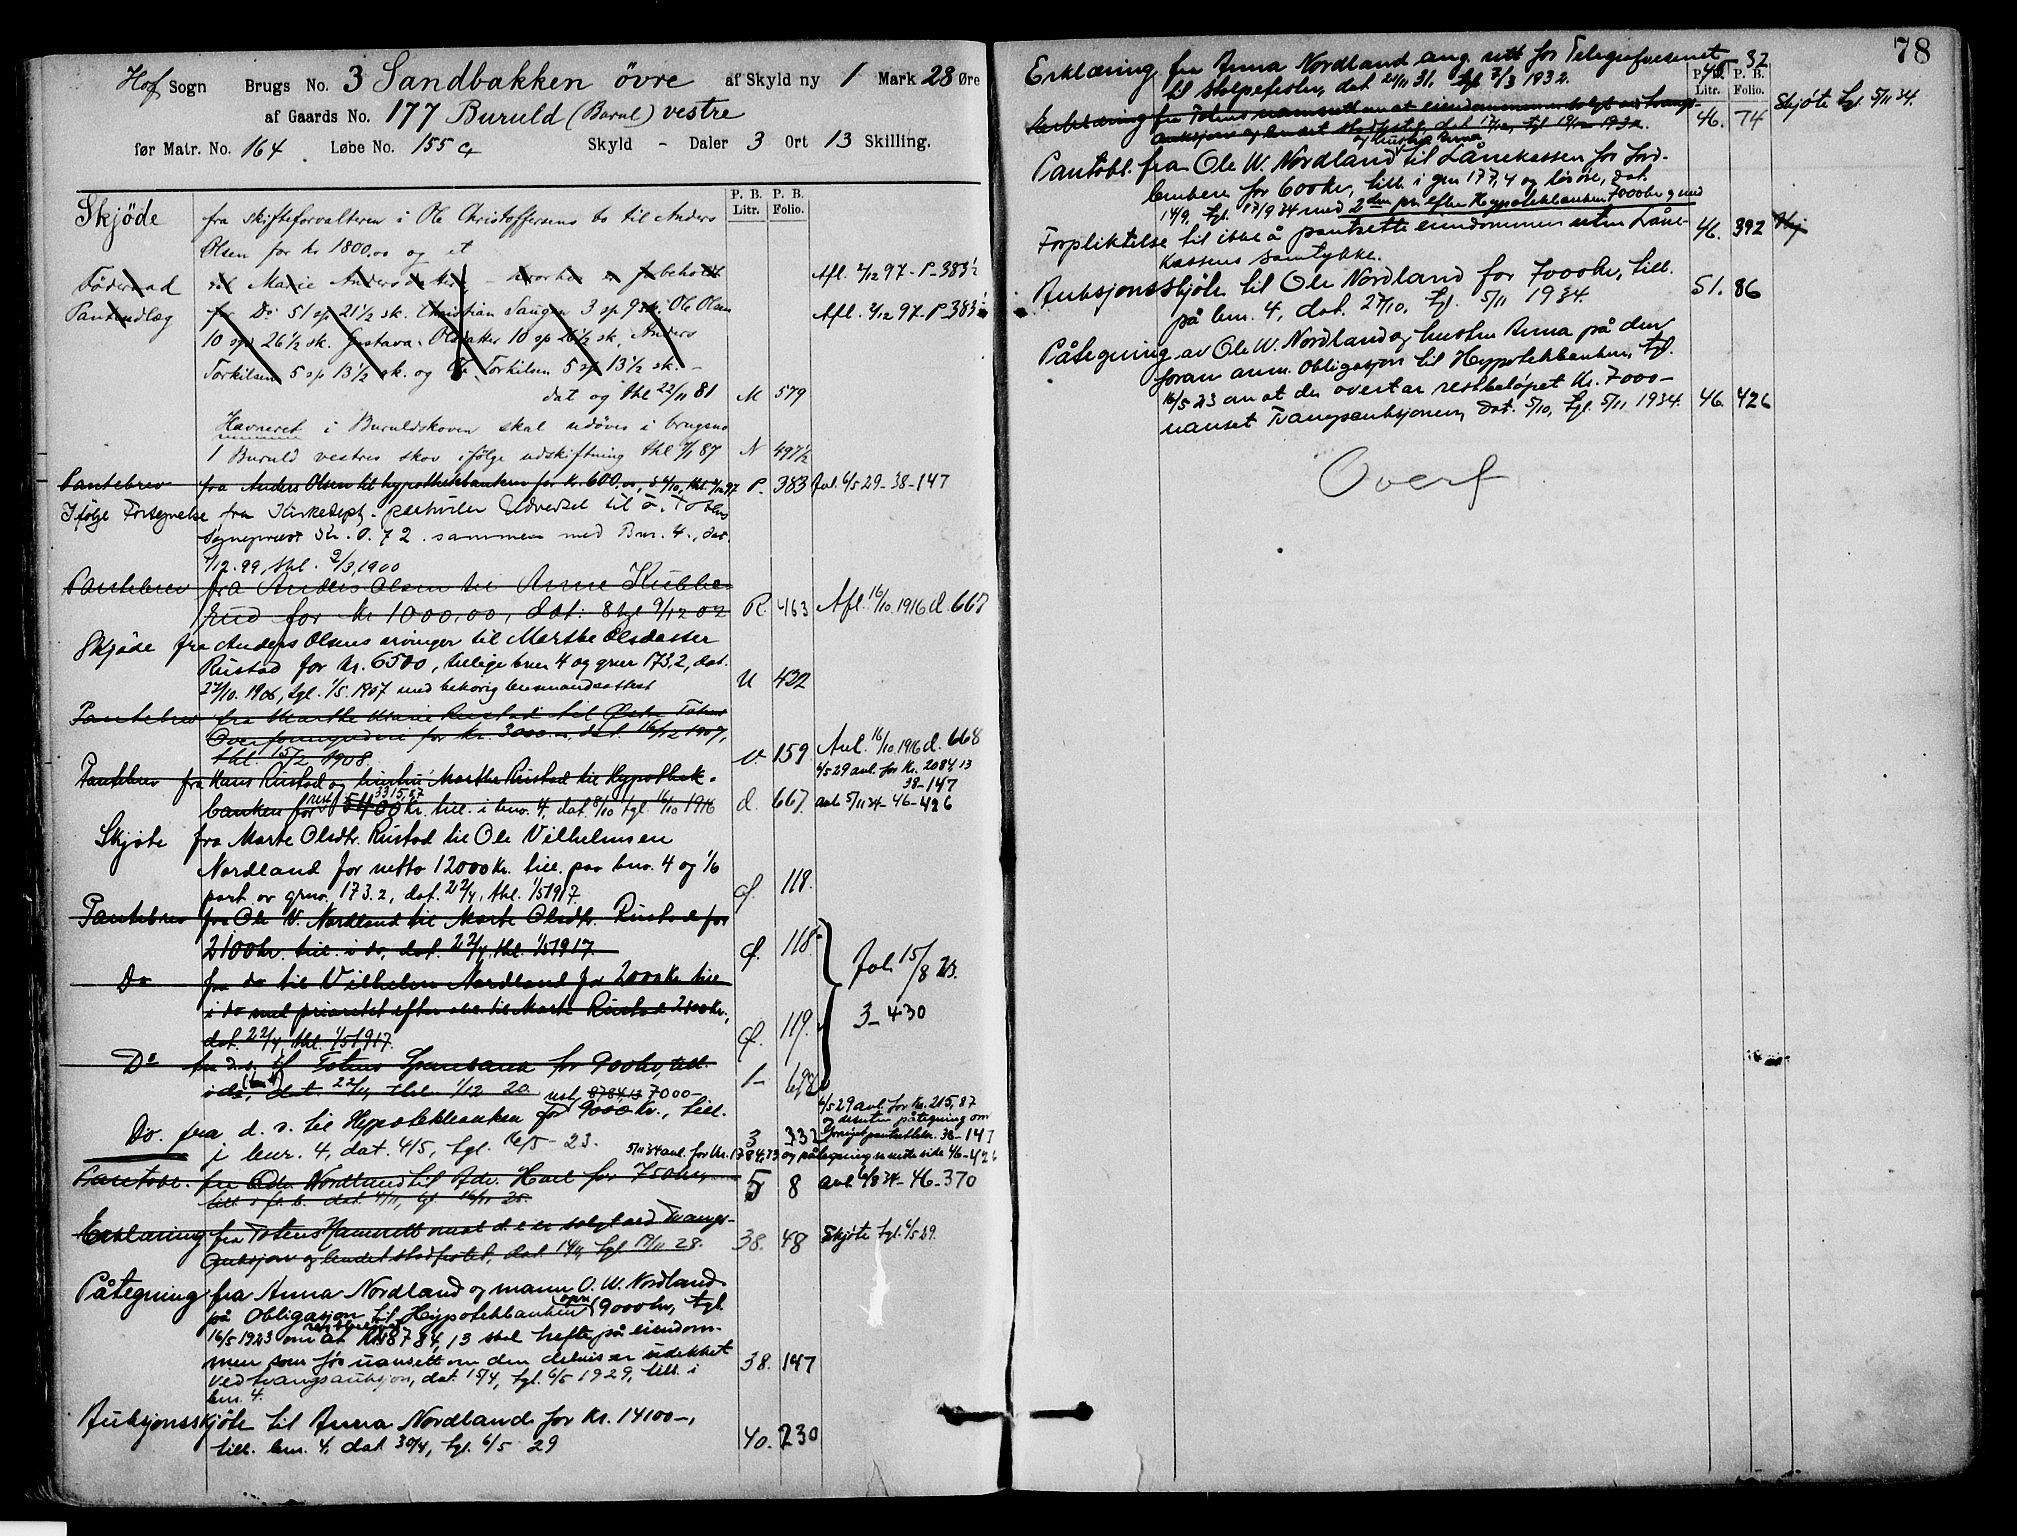 Hof Sogn Brugs No. 3 Sandbakken övre af Skyld ny 1 Mark 28 Øre
af Gaards No. 177 Buruld (Burul) vestre
før Matr. No. 164. Løbe No. 155 a Skyld - Daler 3 Ort 13 Skilling.
P. B. Litr. P. B. Folio.
Skjöde fra skifteforvalteren i Ole Christoffersens bo til Anders
Olsen for kr 1800,00 og et
Föderaad Afl. 2/12 97 - P - 383½
Panteudlæg for Do 51 sp 21½ sk. Christian Saugen 3 sp 9 sk. Ole Olsen Afl. 2/12 97 P - 383½
10 sp 26½ sk. Gustava Olsdatter 10 sp 26½ sk, Anders
Torkilsen 5 sp 13½ sk. og Ole Torkilsen 5 sp 13½ sk. -
dat og thl 22/11 81 M 579
Havneret i Buruldskoven skal udöves i brugsno
1 Buruld vestres skov ifölge udskiftning thl 7/1 87 N 497½
Pantebrev fra Anders Olsen til hypothekbanken for kr 600,00, d 4/10, thl 2/12 97 P. 383 Avl. 6/5 29 - 38 - 147
Ifölge Fortegnelse fra Kirkedept.
Sognepræst Kr. 0.72 sammen med Bnr. 4., dat.
1/12 99, thl. 2/3 1900
Pantebrev fra Anders Olsen til Anne Kubbe-
rud for kr 1000,00, dat. 8 tgl 9/12 02 R. 463 Afl. 16/10 1916 d. 667
Skjöde fra Anders Olsens arvinger til Marthe Olsdatter
Rustad for kr. 6500, tillige bnr 4 og gnr 173,2, dat.
27/10. 1906, tgl. 1/5. 1907 med behörig lensmandsattest U 432
Pantebrev fra Marthe Marie Rustad til Østre Totens
Overformynderi for kr. 3000.00, dat. 16/12 1907,
thl. 15/2 1908. V 159 Avl. 16/10 1916 d. 668
Pantebrev fra Hans Rustad og hustru Marthe Rustad til Hypothek- 6/5 29 avl. for kr. 2084,13
38 - 147
banken for rest 3315,87 5400 kr. till. i bno. 4, dat 8/10 tgl. 16/10 1916 d. 667. avl. 5/11 34 - 46 - 426
Skjöte fra Marte Olsdtr. Rustad til Ole Vilhelmsen
Nordland for netto 12000 kr. till. paa bno. 4 og 1/6
part av gno. 173.2, dat. 22/4, thl. 1/5 1917. 118.
Pantebrev fra Ole W. Nordland til Marte Olsdtr. Rustad for
2100 kr. till. i do, dat. 22/4, thl. 1/5 1917. 118.
Do fra do til Vilhelm Nordland for 2000 kr till Avl. 15/8 23.
i do med prioritet efter obl. til Marte Rustad 2100 kr,
dat. 22/4, thl. 1/5 1917. 119. 3 - 430
Do fra d.s. til Totens Sparebank for 900 kr, till.
i do, (bnr 4) dat. 22/11, thl. 1/12 20. 1 - 692
rest 8784,13 7000 -
Do. fra d. s. til Hypotekbanken for 9000 kr., till. 6/5 29 avl. for kr. 215,87
i bnr. 4, dat. 4/5, tgl. 16/5 - 23. 3 332 og desuten påtegning om
38 - 147
5/11 34 avl. for kr. 1784,13 og påtegning se neste side 46 - 426
Pantobl. fra Ole Nordland til Adv. Hoel for 750 kr, 5 8 avl. 6/8 34 - 46 - 370
Erklæring fra Totens Namsrett om at d.e. er solgt ved Tvangs-
auksjon og budet stadfestet, dat. 14/11, tgl. 17/11 28. 38. 48 Skjöte tgl. 6/5 29.
Påtegning fra Anna Nordland og mann O. W. Nordland
på Obligasjon til Hypotekbanken opr. (9000 kr, tgl.
16/5 1923 om at restbelöpet kr. 8784,13 skal hefte på eiendom-
men som för uansett om den delvis er udekket 38. 147
ved tvangsauksjon, dat. 15/4, tgl. 6/5 1929, till. i
bnr. 4.
Auksjonsskjöte til Anna Nordland for kr. 14100 -,
till. bnr. 4, dat. 30/4, tgl. 6/5 29 40. 230
78
Erklæring fra Anna Nordland ang. rett for Telegrafvesenet 45 32
til stolpefester, dat 21/11 31. tgl 7/3 1932.
P. B. Litr. P. B. Folio.
Erklæring fra Totens namsrett om at eiendommen er solgt ved tvangs- 46. 74 Skjöte tgl. 5/11 34.
auksjon og budet stadfestet, dat 17/12, tgl 19/12 1932.
og hustru Anna
Pantobl. fra Ole W. Nordland til Lånekassen for Jord-
brukere for 600 kr, till. i gnr 177,4 og lösöre, dat.
14/9. tgl. 17/9 34 med 2den pri. efter Hypotekbanken 7000 kr og med
Forpliktelse til ikke å pantsette eiendommen uten Låne- 46. 392
kassens samtykke.
Auksjonsskjöte til Ole Nordland for 7000 kr, till. 51. 86
på bnr. 4, dat. 27/10, tgl. 5/11 1934.
Påtegning av Ole W. Nordland og hustru Anna på den
foran anm. Obligasjon til Hypotekbanken, tgl.
16/5 23 om at de overtar restbelöpet kr. 7000 - 46 426
uanset Tvangsauksjonen, dat. 5/10, tgl. 5/11 1934.
Overf